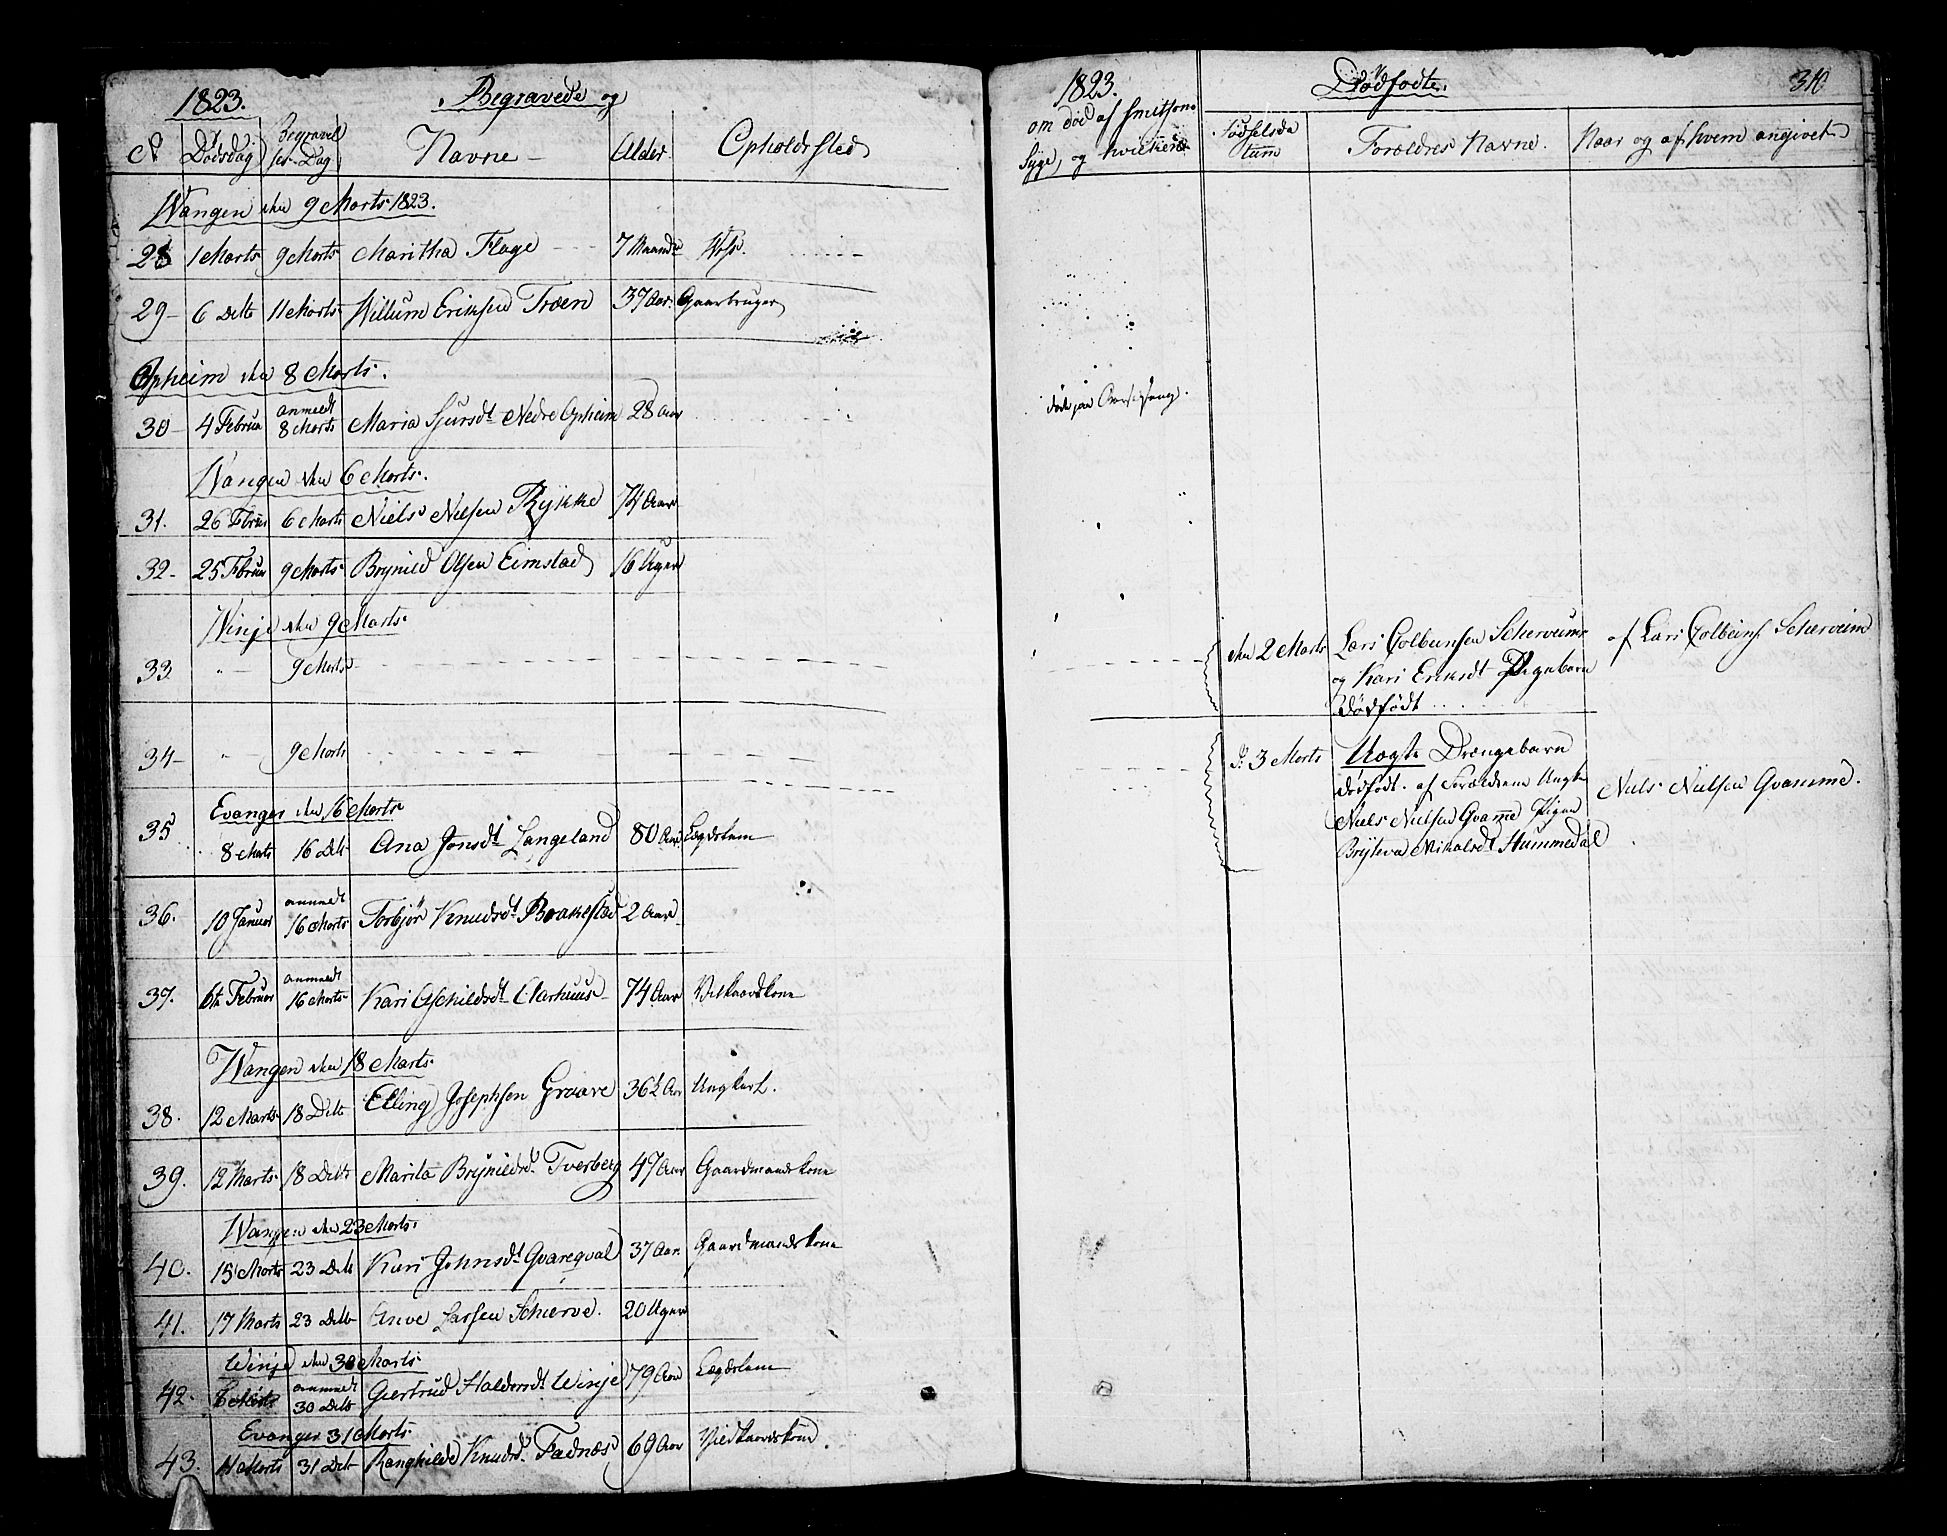 1823. Begravede og
N Dødsdag Begravelses Dag Navne Alder Opholdssted
Wangen den 9 Marts 1823.
28 1 Marts 9 Marts Maritha Flage 7 Maaneder
29 6 Dito 11 Marts Willum Eriksen Troen 37 Aar. Gaarbruger
Opheim den 8 Marts.
30 4 Februar anmeldt 8 Marts Maria Sjursdt Nedre Opheim 28 Aar
Wangen den 6 Marts.
31. 26 Februar 6 Marts Niels Nilsen Rykke 74 Aar
32 25 Februar 9 Marts Brynild Olsen Eimstad 16 Uger
Winje den 9 Marts
33 " 9 Marts
34 " 9 Marts
Evanger den 16 Marts
35 8 Marts 16 Dito Ana Jonsdt Langeland 80 Aar Lægdslem
36. 10 Januar anmeldt 16 Marts Torbjør Knudsdt Brakestad 2 Aar
37. 6te Februar anmeldt 16 Marts Kari Aschildsdt Aarhuus 74 Aar Vilkaarskone
Wangen den 18 Marts
38. 12 Marts 18 Dito Elling Josephsen Graave 36½ Aar Ungkarl.
39. 12 Marts 18 Dito Marita Brynildsd. Tverberg 47 Aar Gaardmandskone
Wangen den 23 Marts.
40. 15 Marts 23 Dito Kari Johnsdt Gvareqval 37 Aar. Gaardmandskone
41. 17 Marts 23 Dito Anve Larsen Schierve. 20 Uger
Winje den 30 Marts
42. anmeldt 30 Dito Giertrud Haldorsdt Winje 79 Aar Lægdslem
Evanger 31 Marts
43. 11 Marts 31 Dito Ranghilde Knudsd. Fadnæs 69 Aar Vilkaarskone.
1823. Dødfødte. 310
om død af smitsom
Syge, og hvilken
Fødselsdatum Forældres Navne. Naar og af hvem angivet
den 2 Marts Lars Colbensen Scherveim af Lars Colbeins Scherveim
og Kari Eriksdt Pigebarn
Dødfødt
D. 3 Marts Uægte Drængebarn
dødfødt. af Forældrene Ungk Niels Nielsen Gvamme.
Niels Nielsen Gvame Pigen
Bryteva Nikolsdt Hummedal